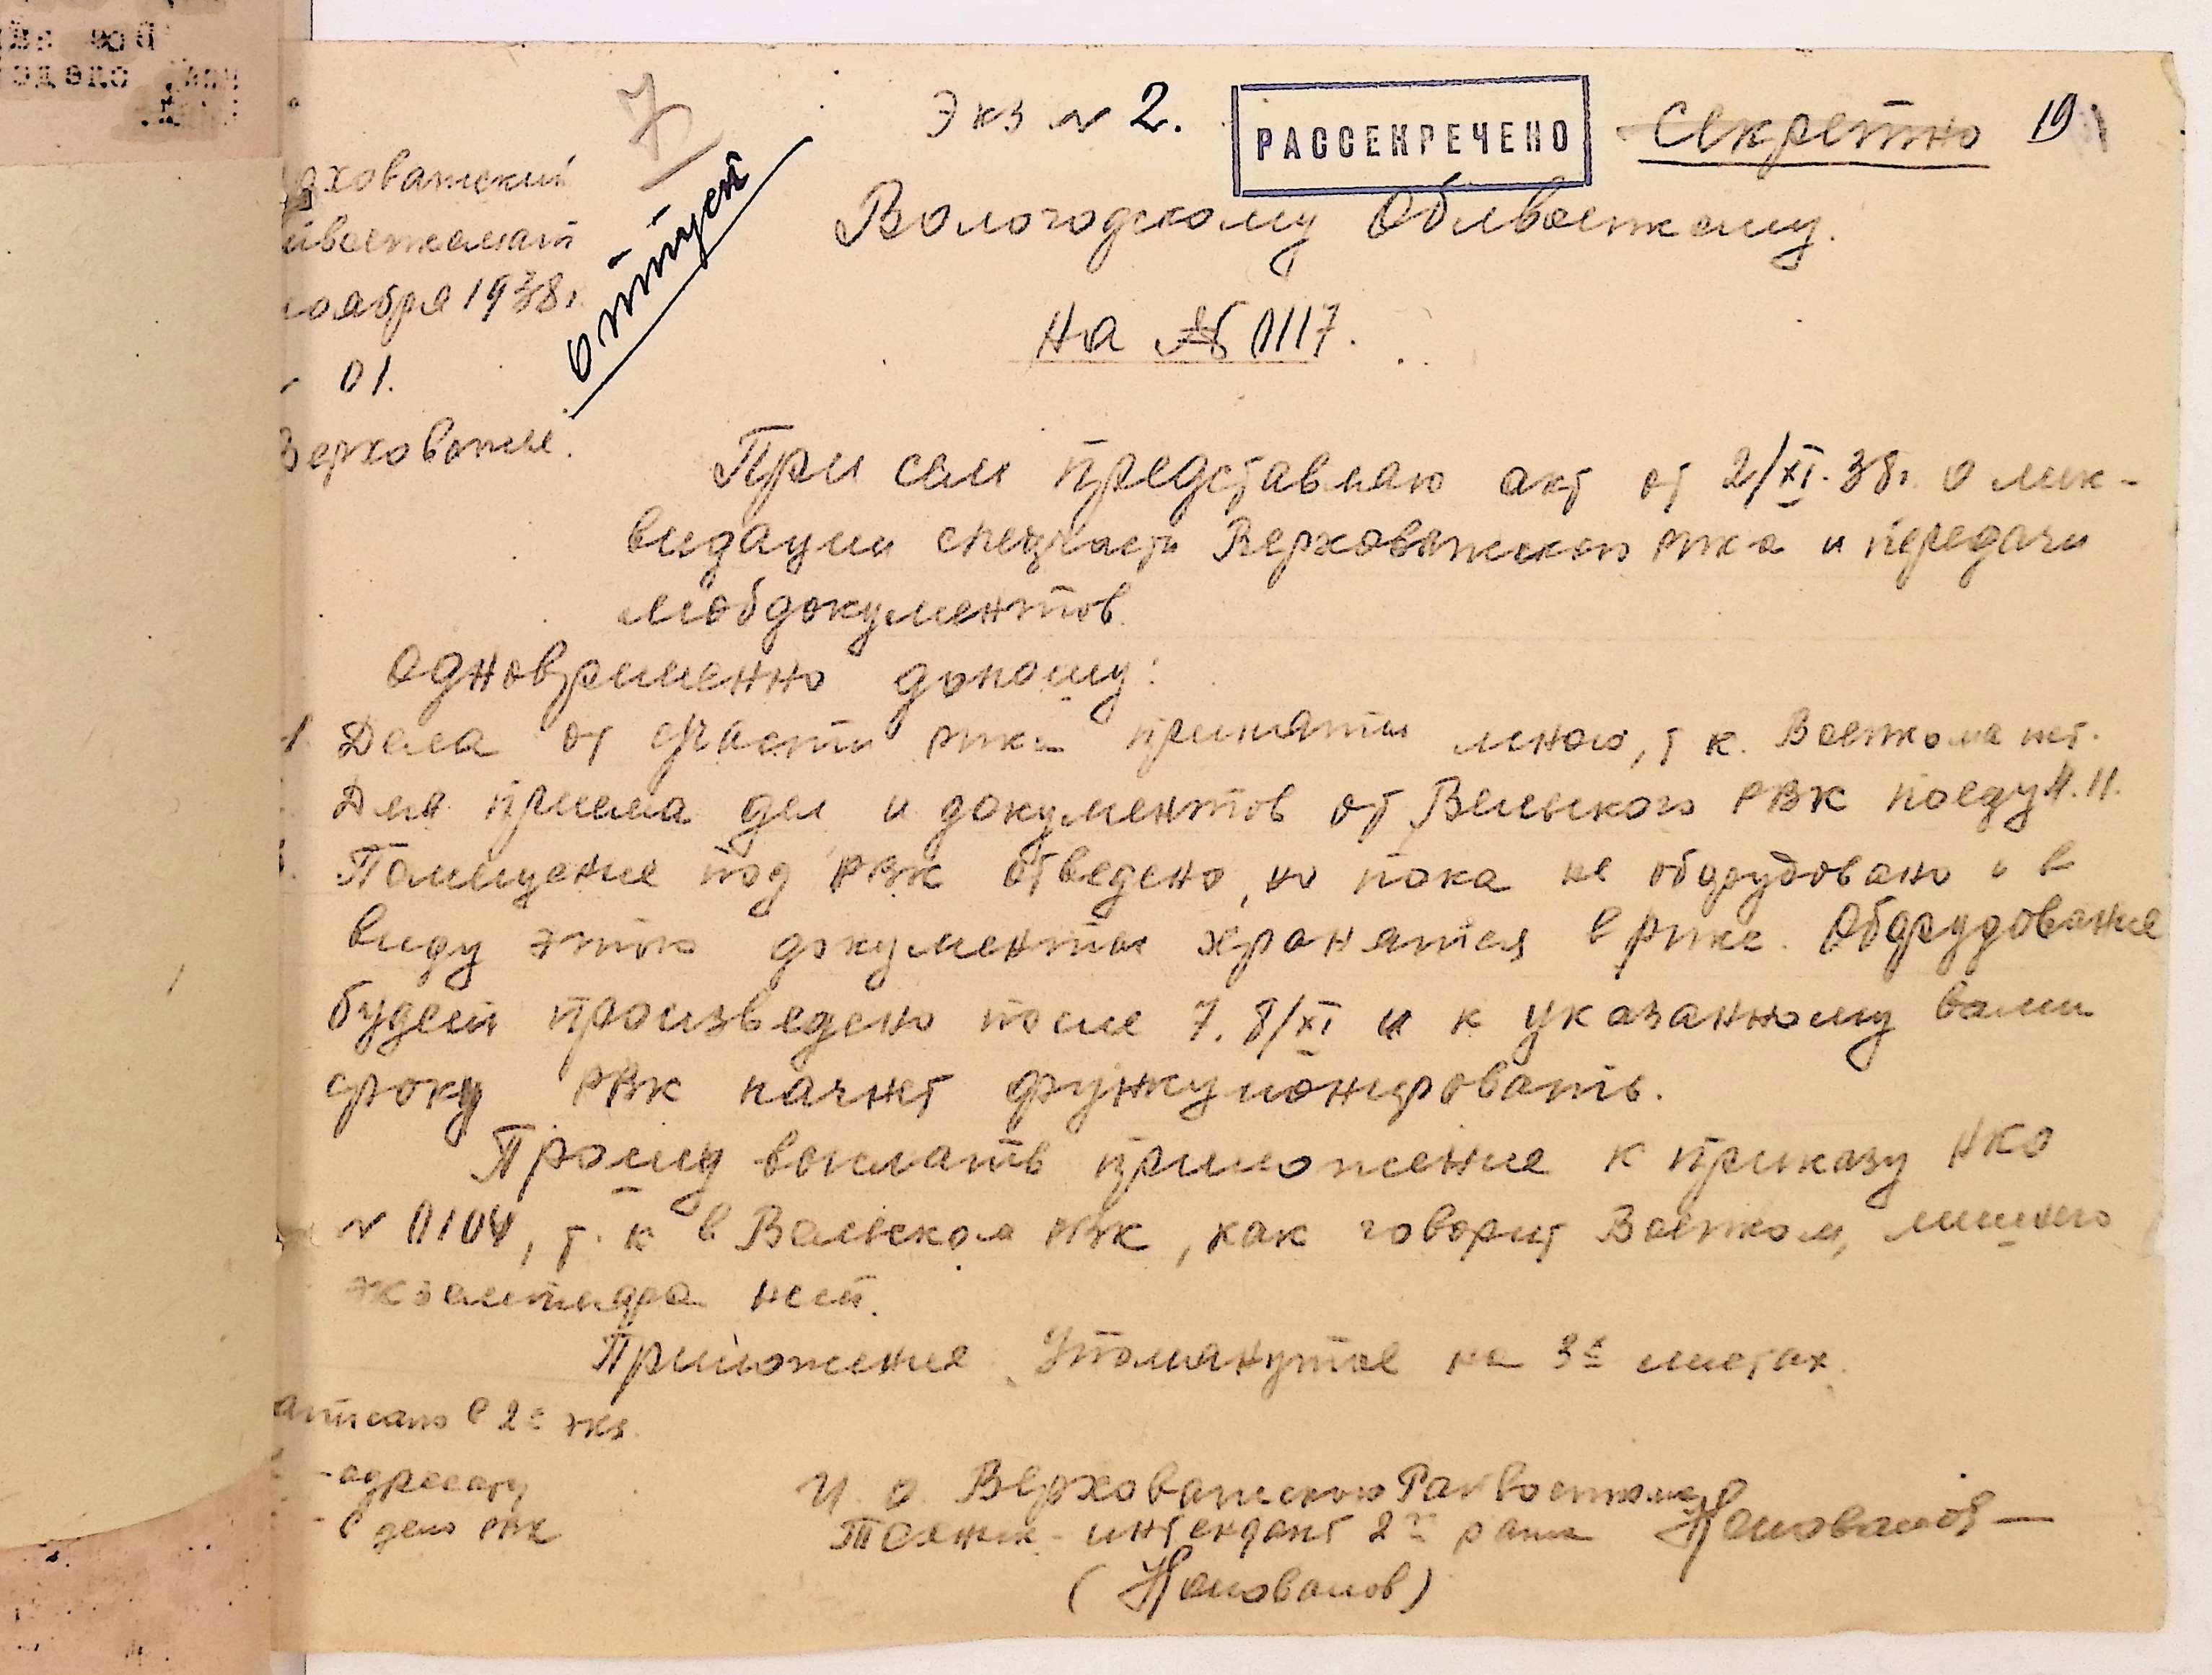 Экз № 2.
РАССЕКРЕЧЕНО
Секретно
19
7
отпуск
рховажский
йвоенкомат
ноября 1938 г.
01.
Верховажье.
Вологодскому Облвоенкому.
На № 0117.
При сем представляю акт от 2/XI.38г. о лик-
видации спецчасти Верховажского рика и передачи
мобдокументов.
Одновременно доношу:
1. Дела от с/части рика приняты мною, т к. Военкома нет.
Для приема дел и документов от Вельского РВК поеду 4.11.
Помещение под РВК отведено, но пока не оборудовано и в
виду этого документы хранятся в рике. Оборудование
будет произведено после 7.8/XI и к указанному вами
сроку РВК начнет функционировать.
Прошу выслать приложение к приказу НКО
№ 0104, т. к в Вельском РВК, как говорит Военком, лишнего
экземпляра нет.
Приложение Упомянутое на 3х листах.
аписано в 2х экз.
- адресату
- в дело РВК
И. о. Верховажского Райвоенкома
Техник-интендант 2го ранга